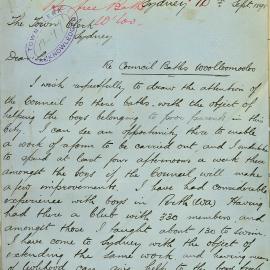 Sydney 10th Sept 189
The Town Clerk
Sydney
Dear Sir
Re Council Baths Woolloomooloo
I wish respectfully to draw the attention of
the Council to these baths, with the object of
helping the boys belonging to poor parents in this
City. I can see an opportunity there to enable
a work of reform to be carried out and I undertake
to spend at least four afternoons a week there
amongst the boys if the Council will make
a few improvements. I have had considerable
experience with boys in Perth (WA) Having
had there a Club with 330 members, and
amongst those I taught about 130 to swim
I have come to Sydney with the object of
extending the same work and having